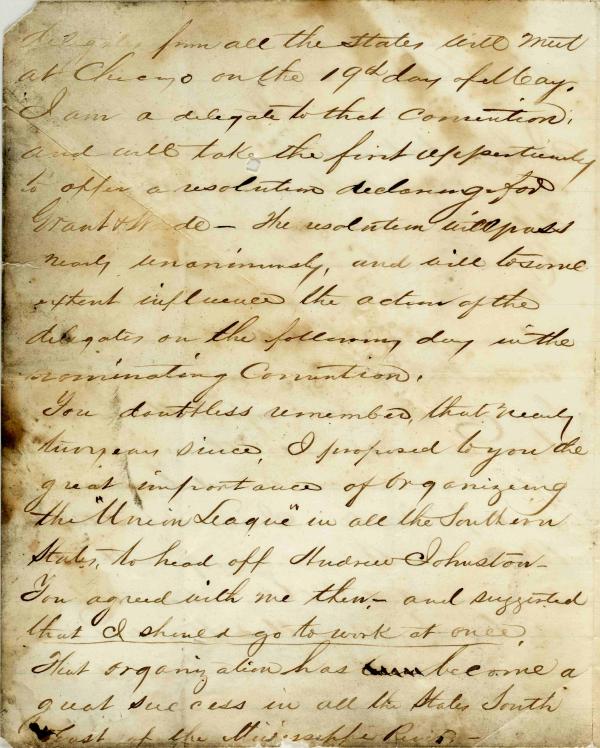 delegates from all the States will meet
at Chicago on the 19th day of May.
I am a delegate to that Convention,
and will take the first oppertunity
to offer a resolution declaring for
Grant & Wade — the resolution will pass
nearly unanimously, and will to some
extent influence the action of the
delegates on the following day in the
nominating Convention.
You doubtless remember, that nearly
two years since, I proposed to you the
great importance of organizeing
the "Union League" in all the Southern
States, to head off Andrew Johnston —
You agreed with me then, — and suggested
that I should go to work at once
That organization has become a
great success in all the States South
East of the Mississippi River —